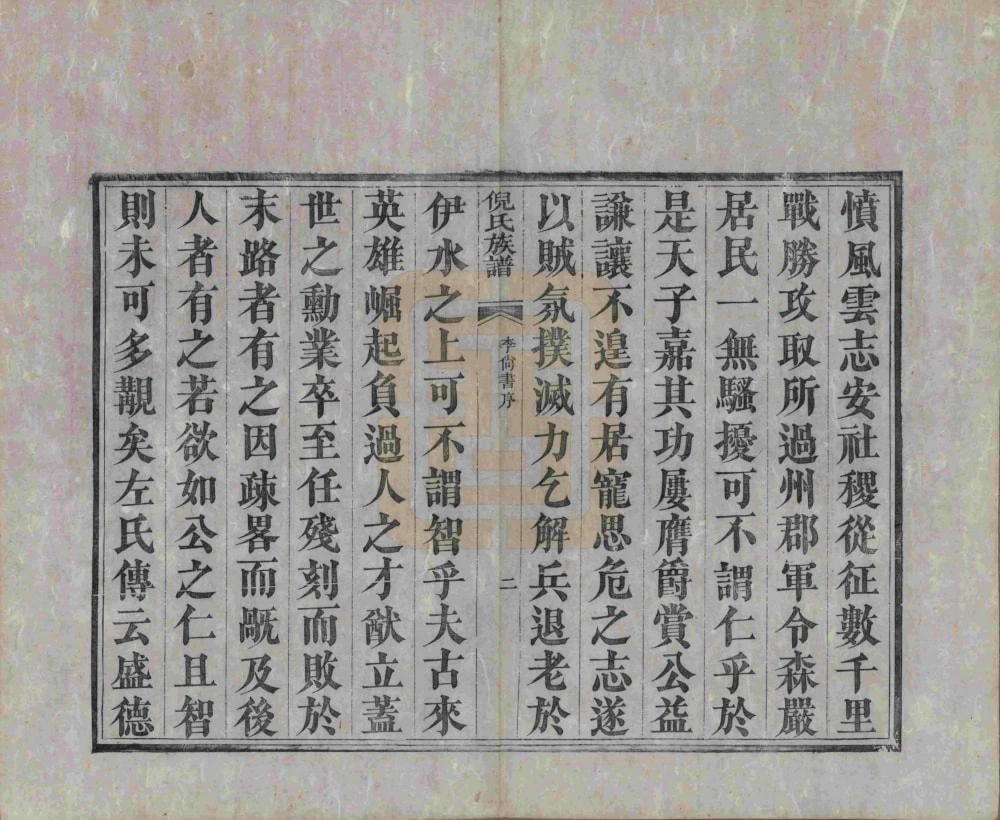 憤風雲志安社稷從征數千里
戰勝攻取所過州郡軍令森嚴
居民一無騷擾可不謂仁乎於
是天子嘉其功屢膺爵賞公益
謙讓不遑有居寵思危之志遂
以賊氛撲滅力乞解兵退老於
倪氏族譜
李尙書序
二
伊水之上可不謂智乎夫古來
英雄崛起負過人之才猷立蓋
世之勳業卒至任殘刻而敗於
末路者有之因疎畧而颳及後
人者有之若欲如公之仁且智
則未可多覯矣左氏傳云盛德